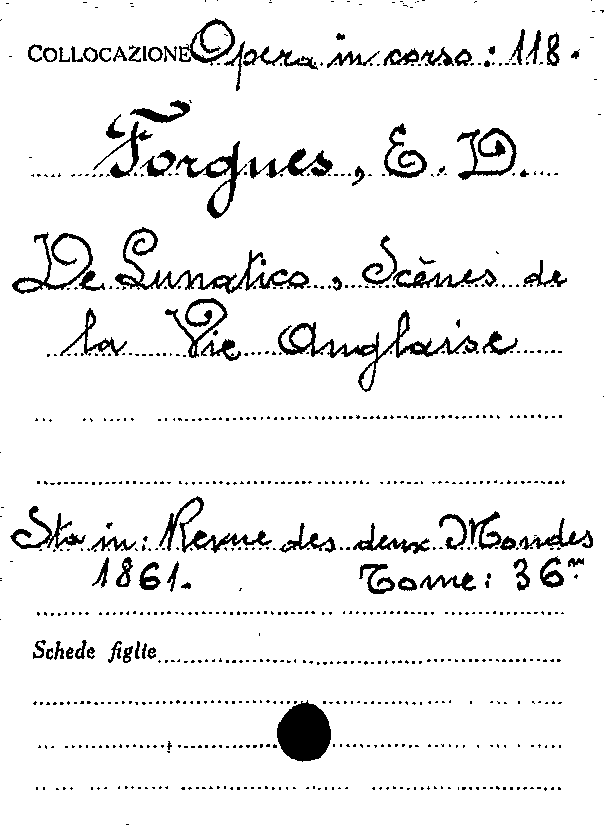 COLLOCAZIONE Opera in corso: 118.
Forgues, E. D.
De Lunatico, Scènes de
la Vie Anglaise
Sta in: Revue des deux Mondes
1861. Tome: 36ᵐ
Schede figlie